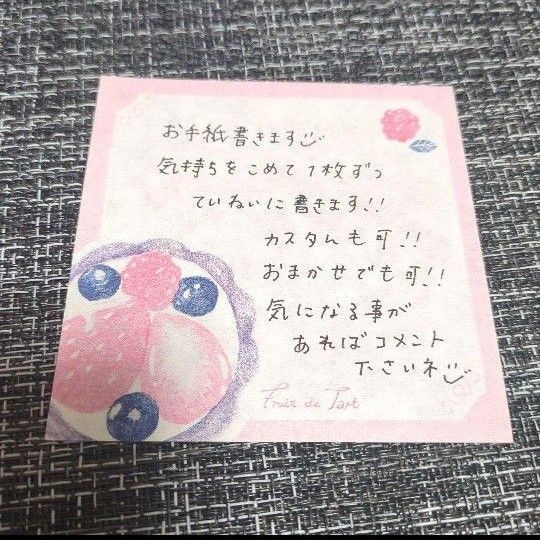 お手紙書きます
気持ちをこめて1枚ずつ
ていねいに書きます!!
カスタムも可!!
おまかせでも可!!
気になる事が
あればコメント
下さいネ
Fruit de Tart